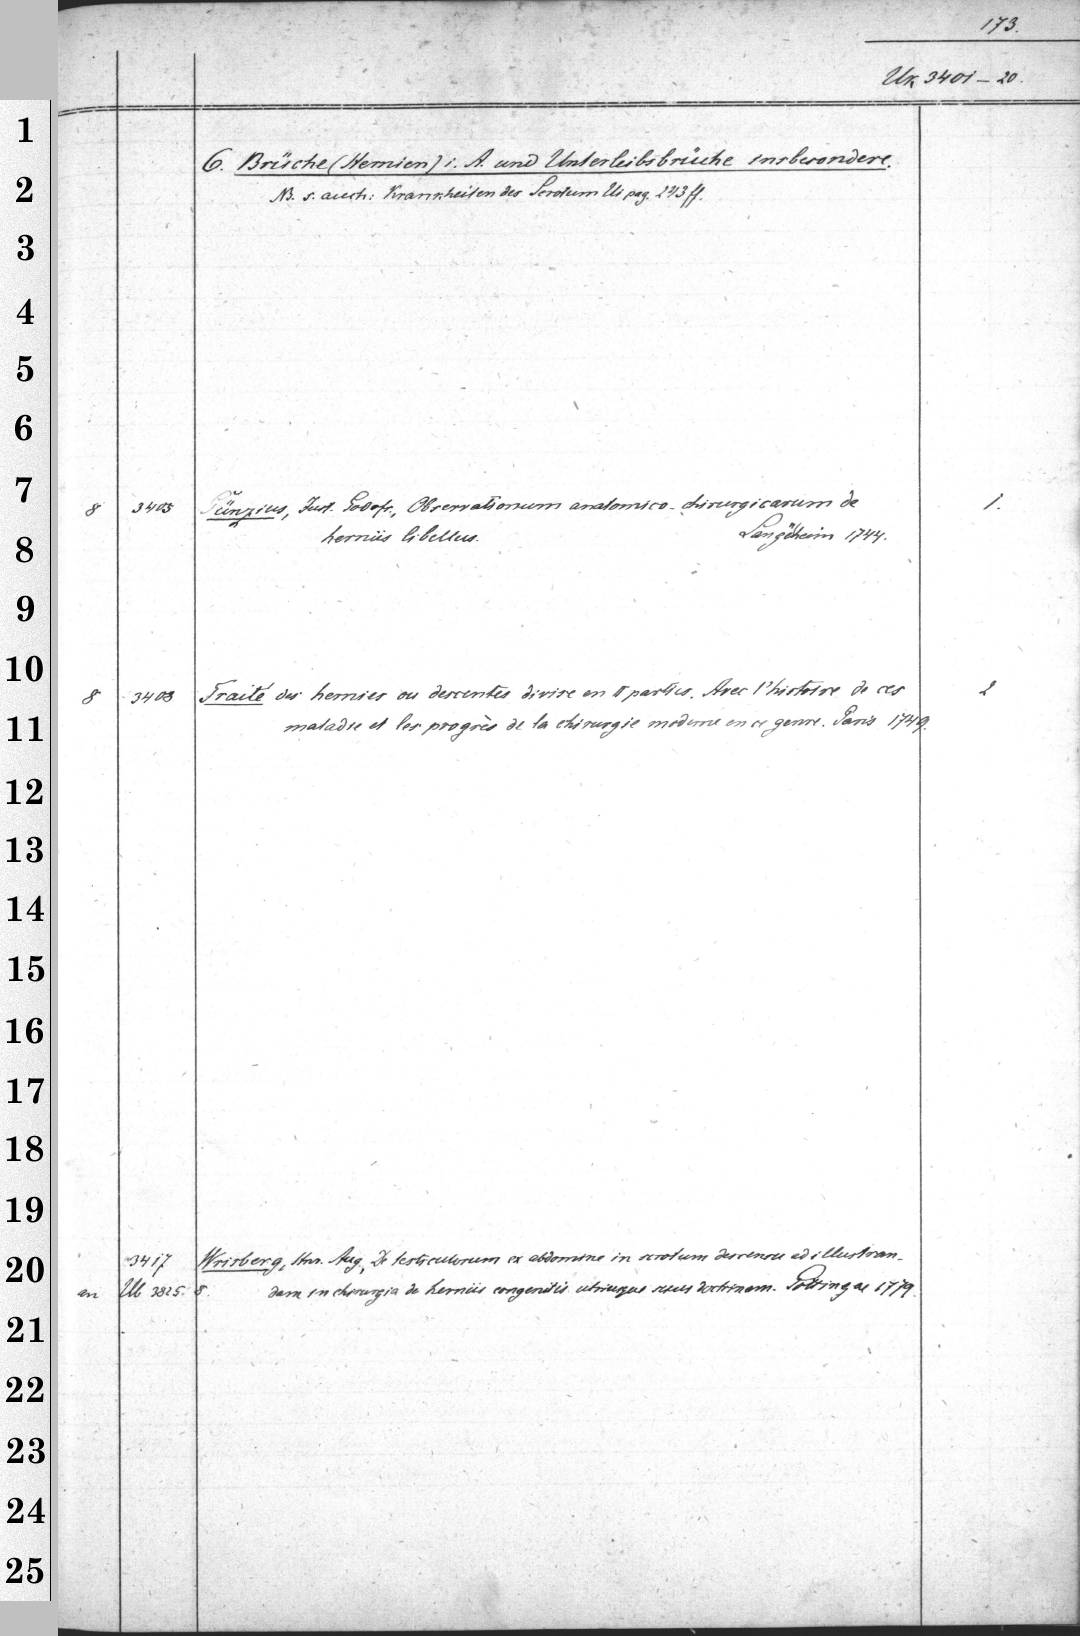 173.
Uk 3401 – 20.
1
6. Brüche (Hernien) i. A. und Unterleibsbrüche insbesondere.
2
NB. s. auch: Krankheiten des Scrotum Ui pag. 243 ff.
3
4
5
6
7
8 3405 Günzius, Just. Godofr., Observationum anatomico-chirurgicarum de 1.
8
herniis libellus. 1744.
9
10
8 3408 Traité des hernies ou descentes divise en II parties. Avec l'histoire de ces 2
11
maladie et les progrès de la chirurgie moderne en ce genre. Paris 1749.
12
13
14
15
16
17
18
19
3417 Wrisberg, Hnr. Aug., De testiculorum ex abdomine in scrotum descensu ad illustran-
20
an Ub 3825. 8. dam in chirurgia de herniis congenitis utriusque sexus doctrinam. Gottingae 1779.
21
22
23
24
25